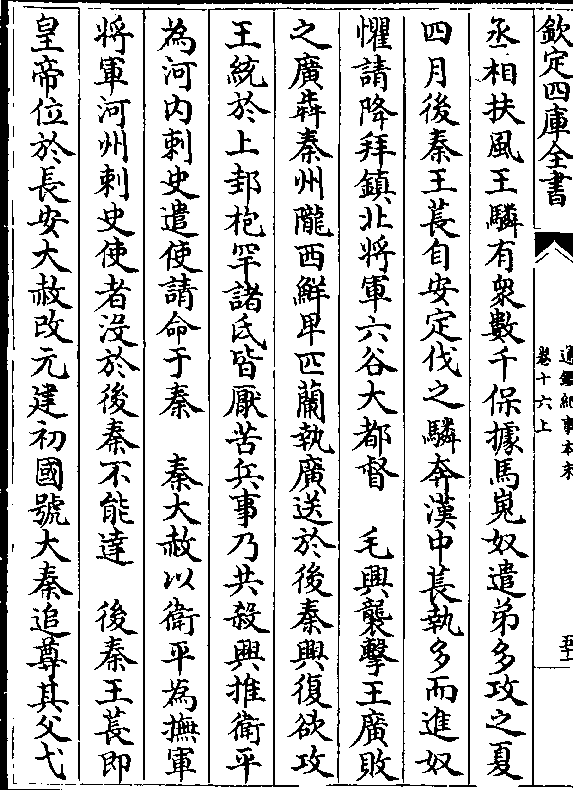 欽定四庫全書
通鑑紀事本末
卷十六上
丞相扶風王驎有衆數千保據馬嵬奴遣弟多攻之夏
四月後秦王萇自安定伐之驎奔漢中萇執多而進奴
懼請降拜鎮北將軍六谷大都督　毛興襲擊王廣敗
之廣奔秦州隴西鮮卑匹蘭執廣送於後秦興復欲攻
王統於上邽枹罕諸氐皆厭苦兵事乃共殺興推衛平
為河内刺史遣使請命于秦　秦大赦以衛平為撫軍
將軍河州刺史使者沒於後秦不能達　後秦王萇即
皇帝位於長安大赦改元建初國號大秦追尊其父弋